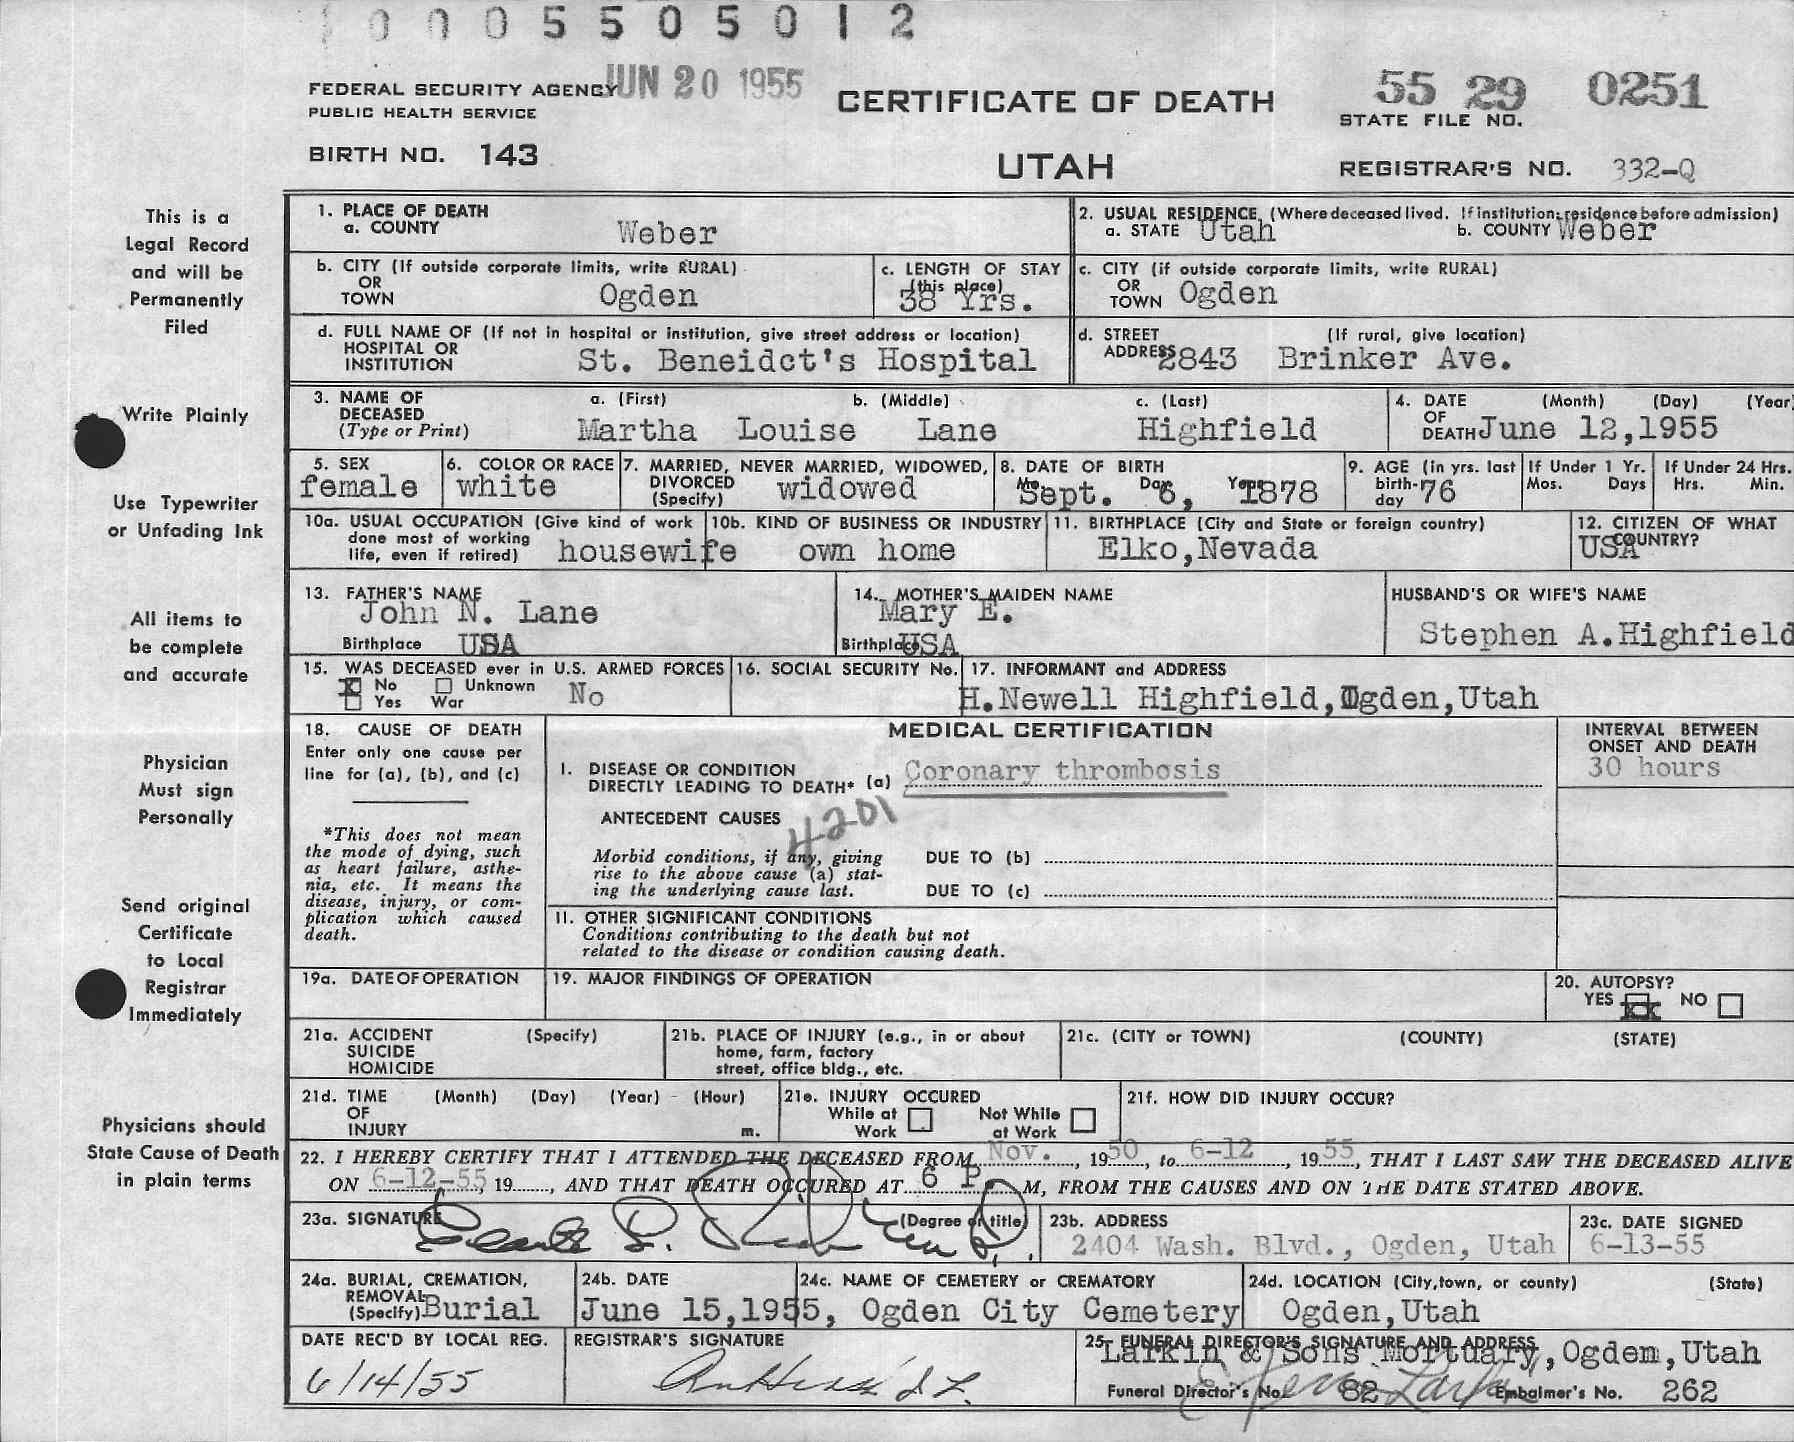 1 0 0 0 5 5 0 5 0 1 2
FEDERAL SECURITY AGENCY JUN 20 1955
PUBLIC HEALTH SERVICE
CERTIFICATE OF DEATH
55 29 0251
STATE FILE NO.
BIRTH NO. 143
UTAH
REGISTRAR'S NO. 332-Q
This is a
Legal Record
and will be
Permanently
Filed
Write Plainly
Use Typewriter
or Unfading Ink
All items to
be complete
and accurate
Physician
Must sign
Personally
Send original
Certificate
to Local
Registrar
Immediately
Physicians should
State Cause of Death
in plain terms
1. PLACE OF DEATH
a. COUNTY Weber
2. USUAL RESIDENCE (Where deceased lived. If institution: residence before admission)
a. STATE Utah b. COUNTY Weber
b. CITY (If outside corporate limits, write RURAL)
OR
TOWN Ogden
c. LENGTH OF STAY
(this place)
38 Yrs.
c. CITY (if outside corporate limits, write RURAL)
OR
TOWN Ogden
d. FULL NAME OF (If not in hospital or institution, give street address or location)
HOSPITAL OR
INSTITUTION St. Beneidct's Hospital
d. STREET (If rural, give location)
ADDRESS 2843 Brinker Ave.
3. NAME OF
DECEASED
(Type or Print)
a. (First) b. (Middle) c. (Last)
Martha Louise Lane Highfield
4. DATE (Month) (Day) (Year)
OF
DEATH June 12,1955
5. SEX
female
6. COLOR OR RACE
white
7. MARRIED, NEVER MARRIED, WIDOWED,
DIVORCED
(Specify) widowed
8. DATE OF BIRTH
Mo. Day Year
Sept. 6, 1878
9. AGE (in yrs. last
birth-
day 76
If Under 1 Yr.
Mos. Days
If Under 24 Hrs.
Hrs. Min.
10a. USUAL OCCUPATION (Give kind of work
done most of working
life, even if retired) housewife
10b. KIND OF BUSINESS OR INDUSTRY
own home
11. BIRTHPLACE (City and State or foreign country)
Elko,Nevada
12. CITIZEN OF WHAT
COUNTRY?
USA
13. FATHER'S NAME
John N. Lane
Birthplace USA
14. MOTHER'S MAIDEN NAME
Mary E.
Birthplace USA
HUSBAND'S OR WIFE'S NAME
Stephen A.Highfield
15. WAS DECEASED ever in U.S. ARMED FORCES
No Unknown
Yes War No
16. SOCIAL SECURITY No.
17. INFORMANT and ADDRESS
H.Newell Highfield,Ogden,Utah
18. CAUSE OF DEATH
Enter only one cause per
line for (a), (b), and (c)
*This does not mean
the mode of dying, such
as heart failure, asthe-
nia, etc. It means the
disease, injury, or com-
plication which caused
death.
MEDICAL CERTIFICATION
INTERVAL BETWEEN
ONSET AND DEATH
30 hours
I. DISEASE OR CONDITION
DIRECTLY LEADING TO DEATH* (a) Coronary thrombosis
ANTECEDENT CAUSES
4201
Morbid conditions, if any, giving
rise to the above cause (a) stat-
ing the underlying cause last.
DUE TO (b)
DUE TO (c)
II. OTHER SIGNIFICANT CONDITIONS
Conditions contributing to the death but not
related to the disease or condition causing death.
19a. DATE OF OPERATION
19. MAJOR FINDINGS OF OPERATION
20. AUTOPSY?
YES NO
21a. ACCIDENT (Specify)
SUICIDE
HOMICIDE
21b. PLACE OF INJURY (e.g., in or about
home, farm, factory
street, office bldg., etc.
21c. (CITY or TOWN) (COUNTY) (STATE)
21d. TIME (Month) (Day) (Year) (Hour)
OF
INJURY m.
21e. INJURY OCCURED
While at Work
Not While at Work
21f. HOW DID INJURY OCCUR?
22. I HEREBY CERTIFY THAT I ATTENDED THE DECEASED FROM Nov., 1950, to 6-12, 1955, THAT I LAST SAW THE DECEASED ALIVE
ON 6-12-55, 19......, AND THAT DEATH OCCURED AT 6 P M, FROM THE CAUSES AND ON THE DATE STATED ABOVE.
23a. SIGNATURE (Degree or title)
23b. ADDRESS
2404 Wash. Blvd., Ogden, Utah
23c. DATE SIGNED
6-13-55
24a. BURIAL, CREMATION,
REMOVAL
(Specify) Burial
24b. DATE
June 15,1955,
24c. NAME OF CEMETERY or CREMATORY
Ogden City Cemetery
24d. LOCATION (City,town, or county) (State)
Ogden,Utah
DATE REC'D BY LOCAL REG.
6/14/55
REGISTRAR'S SIGNATURE
25. FUNERAL DIRECTOR'S SIGNATURE AND ADDRESS
Larkin & Sons Mortuary,Ogden,Utah
Funeral Director's No. 82 Embalmer's No. 262